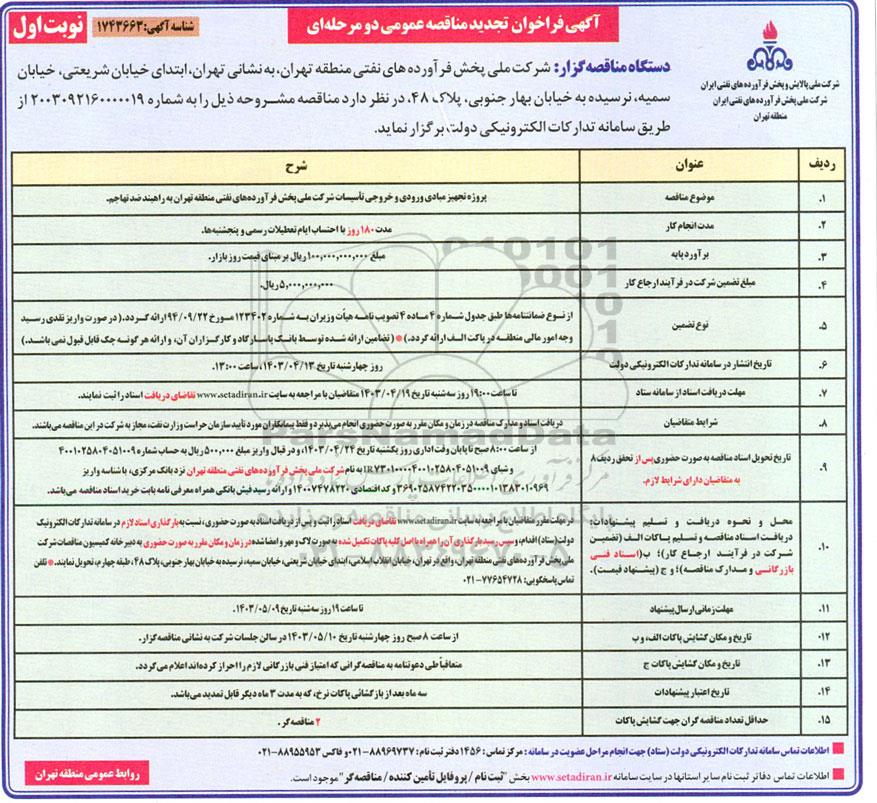 آگهی فراخوان تجدید مناقصه عمومی دو مرحله‌ای
شناسه آگهی: ۱۷۴۳۶۶۳
نوبت اول
شرکت ملی پالایش و پخش فرآورده های نفتی ایران
شرکت ملی پخش فرآورده های نفتی ایران
منطقه تهران
دستگاه مناقصه گزار: شرکت ملی پخش فرآورده های نفتی منطقه تهران، به نشانی تهران، ابتدای خیابان شریعتی، خیابان
سمیه، نرسیده به خیابان بهار جنوبی، پلاک ۴۸، در نظر دارد مناقصه مشروحه ذیل را به شماره ۲۰۰۳۰۹۲۱۶۰۰۰۰۰۱۹ از
طریق سامانه تدارکات الکترونیکی دولت، برگزار نماید.
ردیف عنوان شرح
۱. موضوع مناقصه پروژه تجهیز مبادی ورودی و خروجی تأسیسات شرکت ملی پخش فرآورده‌های نفتی منطقه تهران به راهبند ضد تهاجم.
۲. مدت انجام کار مدت ۱۸۰ روز با احتساب ایام تعطیلات رسمی و پنجشنبه‌ها.
۳. برآورد پایه مبلغ ۱۰۰,۰۰۰,۰۰۰,۰۰۰ ریال بر مبنای قیمت روز بازار.
۴. مبلغ تضمین شرکت در فرآیند ارجاع کار ۵,۰۰۰,۰۰۰,۰۰۰ ریال.
۵. نوع تضمین از نوع ضمانتنامه‌ها طبق جدول شماره ۴ ماده ۴ تصویب نامه هیأت وزیران به شماره ۱۲۳۴۰۲ مورخ ۹۴/۰۹/۲۲ ارائه گردد.( در صورت واریز نقدی رسید
وجه امور مالی منطقه در پاکت الف ارائه گردد.) * ( تضامین ارائه شده توسط بانک پاسارگاد و کارگزاران آن، و ارائه هر گونه چک قابل قبول نمی باشد.)
۶. تاریخ انتشار در سامانه تدارکات الکترونیکی دولت روز چهارشنبه تاریخ ۱۴۰۳/۰۴/۱۳، ساعت ۱۳:۰۰.
۷. مهلت دریافت اسناد از سامانه ستاد تا ساعت ۱۹:۰۰ روز سه شنبه تاریخ ۱۴۰۳/۰۴/۱۹ متقاضیان با مراجعه به سایت www.setadiran.ir تقاضای دریافت اسناد را ثبت نمایند.
۸. شرایط متقاضیان دریافت اسناد و مدارک مناقصه در زمان و مکان مقرر به صورت حضوری انجام می‌پذیرد و فقط پیمانکاران مورد تأیید سازمان حراست وزارت نفت، مجاز به شرکت در این مناقصه می‌باشند.
۹. تاریخ تحویل اسناد مناقصه به صورت حضوری پس از تحقق ردیف ۸
به متقاضیان دارای شرایط لازم.
از ساعت ۸:۰۰ صبح تا پایان وقت اداری روز یکشنبه تاریخ ۱۴۰۳/۰۴/۲۴، و در قبال واریز مبلغ ۵۰۰,۰۰۰ ریال به حساب شماره ۴۰۰۱۰۲۵۸۰۴۰۵۱۰۰۹
و شبای IR۷۳۰۱۰۰۰۰۴۰۰۱۰۲۵۸۰۴۰۵۱۰۰۹ به نام شرکت ملی پخش فرآورده‌های نفتی منطقه تهران نزد بانک مرکزی، با شناسه واریز
۳۶۹۰۲۵۸۷۴۲۲۰۳۵۰۰۰۰۱۰۱۳۸۳۰۱۰۹۶۹ و کد اقتصادی ۱۴۰۰۷۴۷۸۲۲۰ و ارائه رسید فیش بانکی همراه معرفی نامه بابت خرید اسناد مناقصه می‌باشد.
۱۰. محل و نحوه دریافت و تسلیم پیشنهادات:
دریافت اسناد مناقصه و تسلیم پاکات الف (تضمین
شرکت در فرآیند ارجاع کار)؛ ب(اسناد فنی
بازرگانی و مدارک مناقصه)؛ و ج (پیشنهاد قیمت).
در مهلت مقرر متقاضیان با مراجعه به سایت www.setadiran.ir تقاضای دریافت اسناد را ثبت و پس از دریافت اسناد به صورت حضوری، نسبت به بارگذاری اسناد لازم در سامانه تدارکات الکترونیک
دولت(ستاد) اقدام، و سپس رسید بارگذاری آن را همراه با اصل کلیه پاکات تکمیل شده به صورت لاک و مهر و امضا شده در زمان و مکان مقرر به صورت حضوری به دبیرخانه کمیسیون مناقصات شرکت
ملی پخش فرآورده های نفتی منطقه تهران، واقع در تهران، خیابان انقلاب اسلامی، ابتدای خیابان شریعتی، خیابان سمیه، نرسیده به خیابان بهار جنوبی، پلاک ۴۸، طبقه چهارم، تحویل نمایند. * تلفن
تماس پاسخگویی: ۷۷۶۵۴۷۲۸-۰۲۱
۱۱. مهلت زمانی ارسال پیشنهاد تا ساعت ۱۹ روز سه شنبه تاریخ ۱۴۰۳/۰۵/۰۹.
۱۲. تاریخ و مکان گشایش پاکات الف، و ب از ساعت ۸ صبح روز چهارشنبه تاریخ ۱۴۰۳/۰۵/۱۰ در سالن جلسات شرکت به نشانی مناقصه گزار.
۱۳. تاریخ و مکان گشایش پاکات ج متعاقباً طی دعوتنامه به مناقصه‌گرانی که امتیاز فنی بازرگانی لازم را احراز کرده‌اند اعلام می‌گردد.
۱۴. تاریخ اعتبار پیشنهادات سه ماه بعد از بازگشائی پاکات نرخ، که به مدت ۳ ماه دیگر قابل تمدید می‌باشد.
۱۵. حداقل تعداد مناقصه گران جهت گشایش پاکات ۲ مناقصه گر.
اطلاعات تماس سامانه تدارکات الکترونیکی دولت (ستاد) جهت انجام مراحل عضویت در سامانه : مرکز تماس: ۱۴۵۶ دفتر ثبت نام: ۸۸۹۶۹۷۳۷-۰۲۱ و فاکس ۸۸۹۵۵۹۵۳-۰۲۱
اطلاعات تماس دفاتر ثبت نام سایر استانها در سایت سامانه www.setadiran.ir بخش "ثبت نام / پروفایل تأمین کننده / مناقصه گر" موجود است.
روابط عمومی منطقه تهران
ParsNamadData